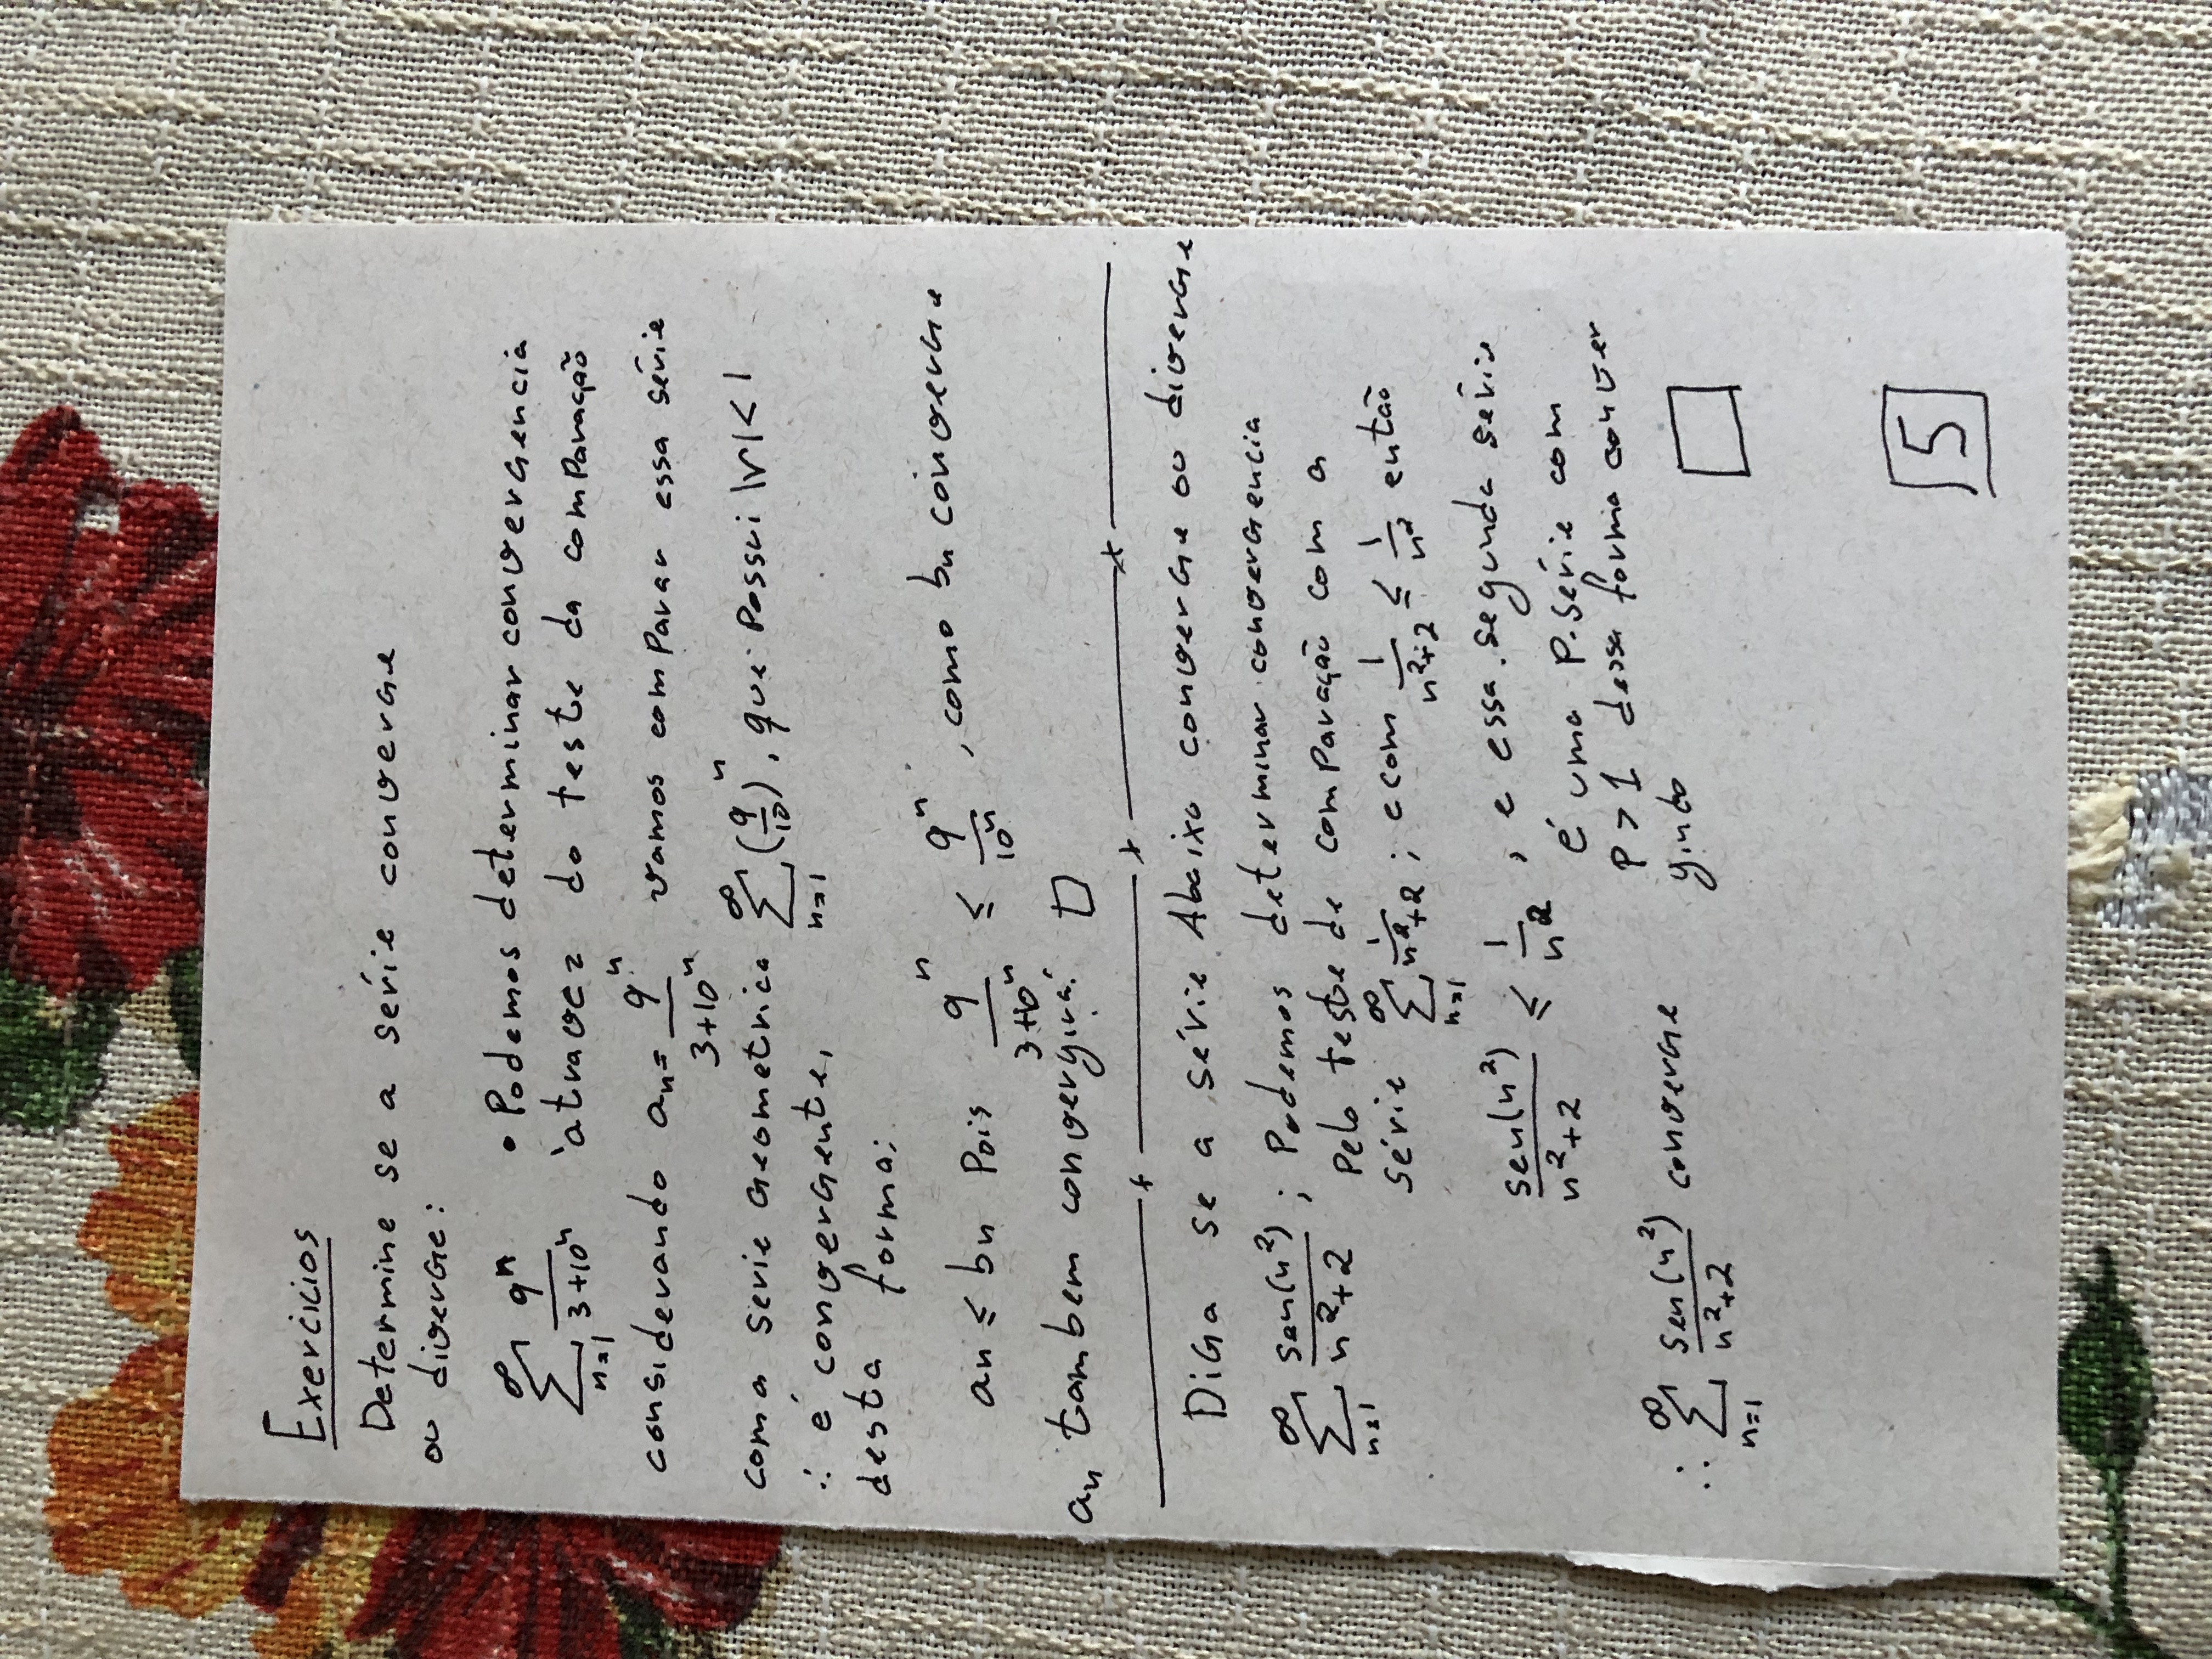 Exercicios
Determine se a série converge
ou diverge:
∞∑n=1 9^n/(3+10^n) • Podemos determinar convergencia
atravez do teste da comparação
considerando an = 9^n/(3+10^n) vamos comparar essa série
com a serie Geometrica ∞∑n=1 (9/10)^n, que possui |r| < 1
∴ é convergente,
desta forma;
an ≤ bn Pois 9^n/(3+10^n) ≤ 9^n/10^n, como bn converge
an tambem convergirá. □
Diga se a série Abaixo converge ou diverge
∞∑n=1 sen(n²)/(n²+2); Podemos determinar convergencia
pelo teste de comparação com a
série ∞∑n=1 1/(n²+2); e com 1/(n²+2) ≤ 1/n² então
sen(n²)/(n²+2) ≤ 1/n², e essa segunda série
é uma P.série com
P > 1 dessa forma conver
gindo
∴ ∞∑n=1 sen(n²)/(n²+2) converge □
5